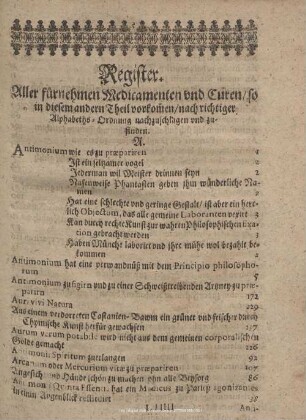 Register.
Aller fürnehmen Medicamenten vnd Curen / so
in diesem andern Theil vorkom̃en / nach richtiger
Alphabeths-Ordnung nachzuschlagen vnd zu-
finden.
A.
Antimonium wie es zu præpariren 2
Ist ein seltzamer vogel 2
Jederman wil Meister drinnen seyn 2
Nasenweise Phantasten geben ihm wünderliche Na-
men 2
Hat eine schlechte vnd geringe Gestalt / ist aber ein herr-
lich Objectum, das alle gemeine Laboranten vexirt 3
Kan durch rechte Kunst zur wahren Philosophischen
gebracht werden 3
Haben Münche laborirt vnd ihre mühe wol bezahlt be-
kommen
Antimonium hat eine verwandnüß mit dem Principio philosopho-
rum 5
Antimonium zu figirn vnd zu einer Schweißtreibenden Artzney zu præ-
172
Auri vivi Natura 229
Aus einem verdorreten Castanien-Bawm ein grüner vnd frischer durch
Chymische Kunst herfür gewachsen 107
Aurum verum potabile wird nicht aus dem gemeinen corporalischen
Golde gemacht 126
Spiritum zuerlangen 92
Arcanum oder Mercurium vitæ zu præpariren 107
Hunde schön zu machen ohn alle Beysorg 86
hat ein Medicus zu Pariß
in einem Augenblick 38